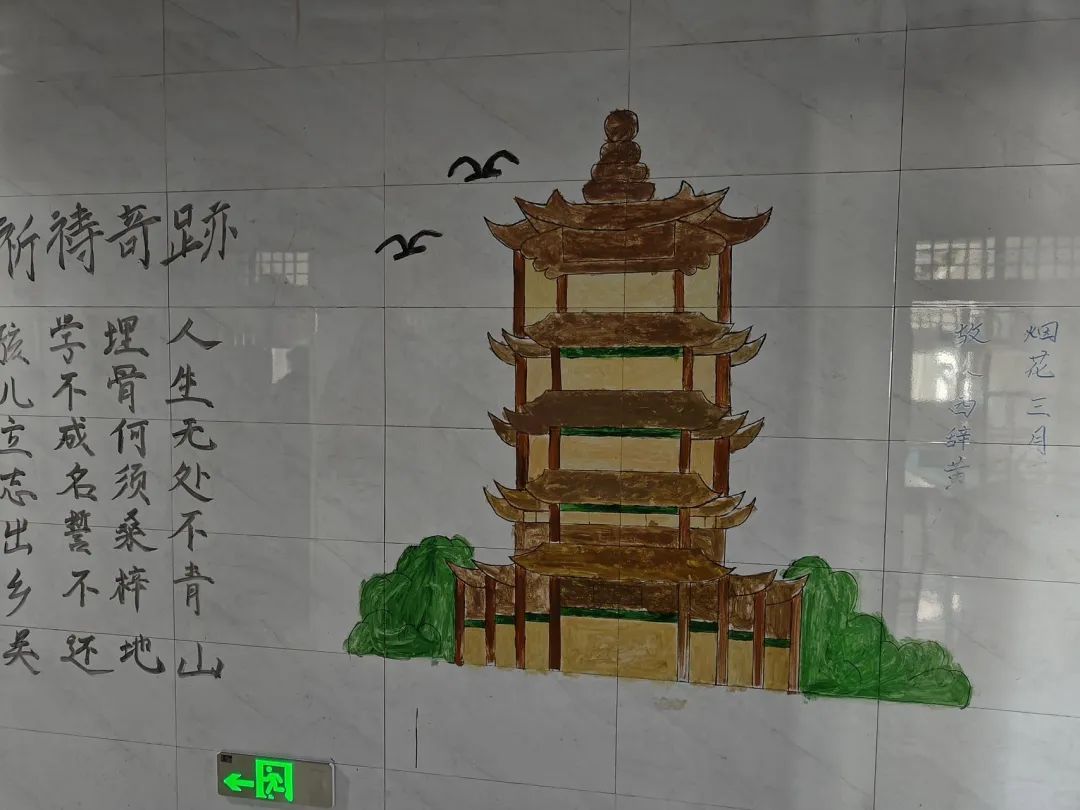 祈祷奇跡
孩儿立志出乡关
学不成名誓不还
埋骨何须桑梓地
人生无处不青山
故人西辞黄
烟花三月